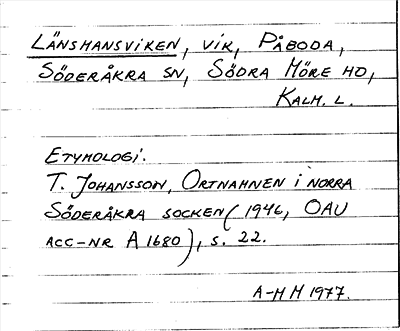 LÄNSMANSVIKEN, VIK, PÅBODA,
SÖDERÅKRA SN, SÖDRA MÖRE HD,
KALM. L.
ETYMOLOGI.
T. JOHANSSON, ORTNAMNEN I NORRA
SÖDERÅKRA SOCKEN (1946, OAU
ACC-NR A 1680), S. 22.
A-M H 1977.